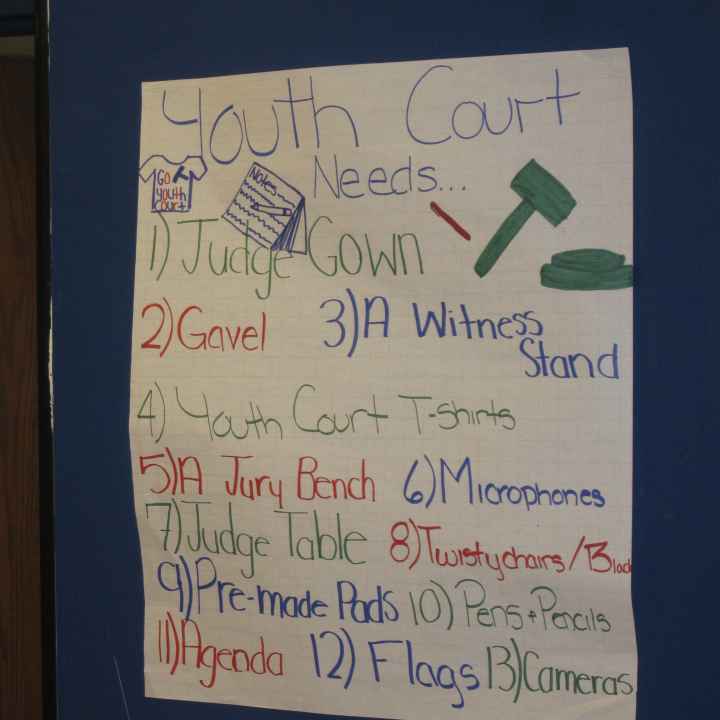 Youth Court
Needs...
Go
Youth
Court
Notes
1) Judge Gown
2) Gavel 3) A Witness
Stand
4) Youth Court T-Shirts
5) A Jury Bench 6) Microphones
7) Judge Table 8) Twisty chairs / Black
9) Pre-made Pads 10) Pens + Pencils
11) Agenda 12) Flags 13) Cameras